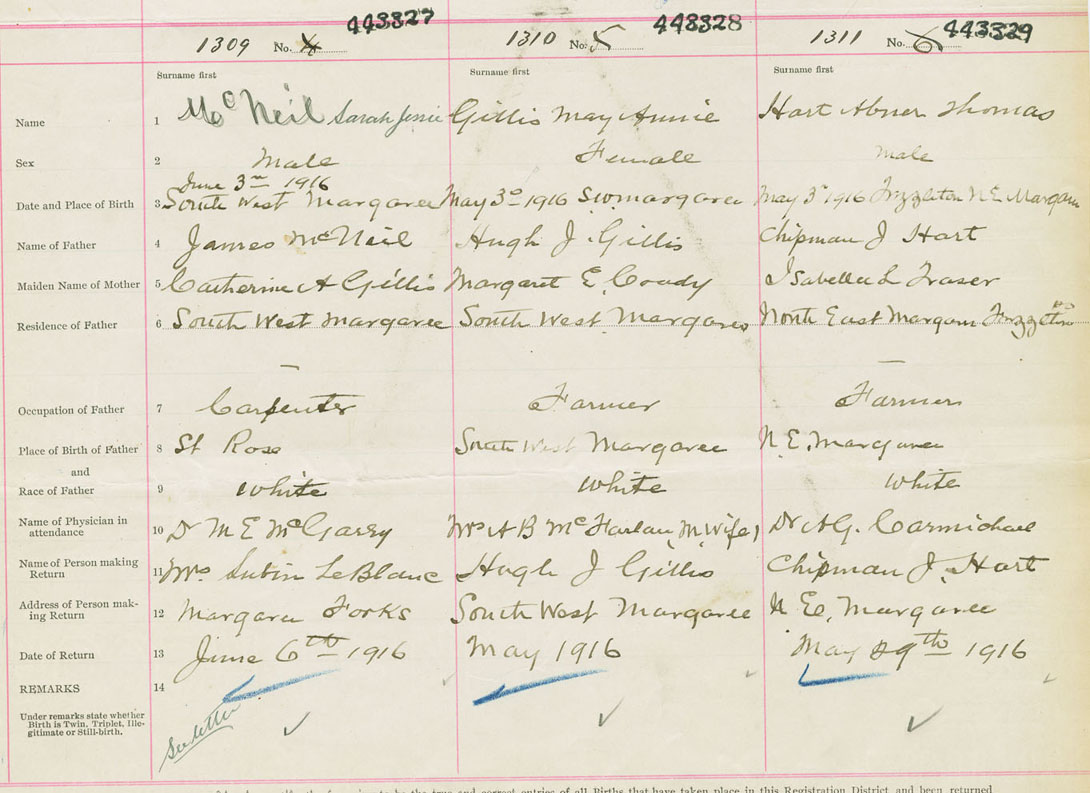 443327 448328 443329
1309 No. 4 1310 No. 5 1311 No. 6
Surname first Surname first Surname first
Name 1 McNeil Sarah Jennie Gillis May Annie Hart Abner Thomas
Sex 2 Male Female male
June 3rd 1916
Date and Place of Birth 3 South West Margaree May 3o 1916 S.W. margaree May 3 1916 Frizzleton N E Margaree
Name of Father 4 James McNeil Hugh J Gillis Chipman J Hart
Maiden Name of Mother 5 Catherine A Gillis Margaret E. Coady Isabella L Fraser
Residence of Father 6 South West Margaree South West Margaree North East Margaree Frizzleton
Occupation of Father 7 Carpenter Farmer Farmer
Place of Birth of Father 8 St Rose South West Margaree N. E. Margaree
and
Race of Father 9 White White White
Name of Physician in
attendance 10 Dr M E McGarry Mrs A B McFarlan M. Wife) Dr A G. Carmichael
Name of Person making
Return 11 Mrs Lubin LeBlanc Hugh J Gillis Chipman J. Hart
Address of Person mak-
ing Return 12 Margaree Forks South West Margaree N E. Margaree
Date of Return 13 June 6th 1916 May 1916 May 29th 1916
REMARKS 14
Under remarks state whether
Birth is Twin, Triplet, Ille-
gitimate or Still-birth.
See letter
to be the true and correct entries of all Births that have taken place in this Registration District, and been returned